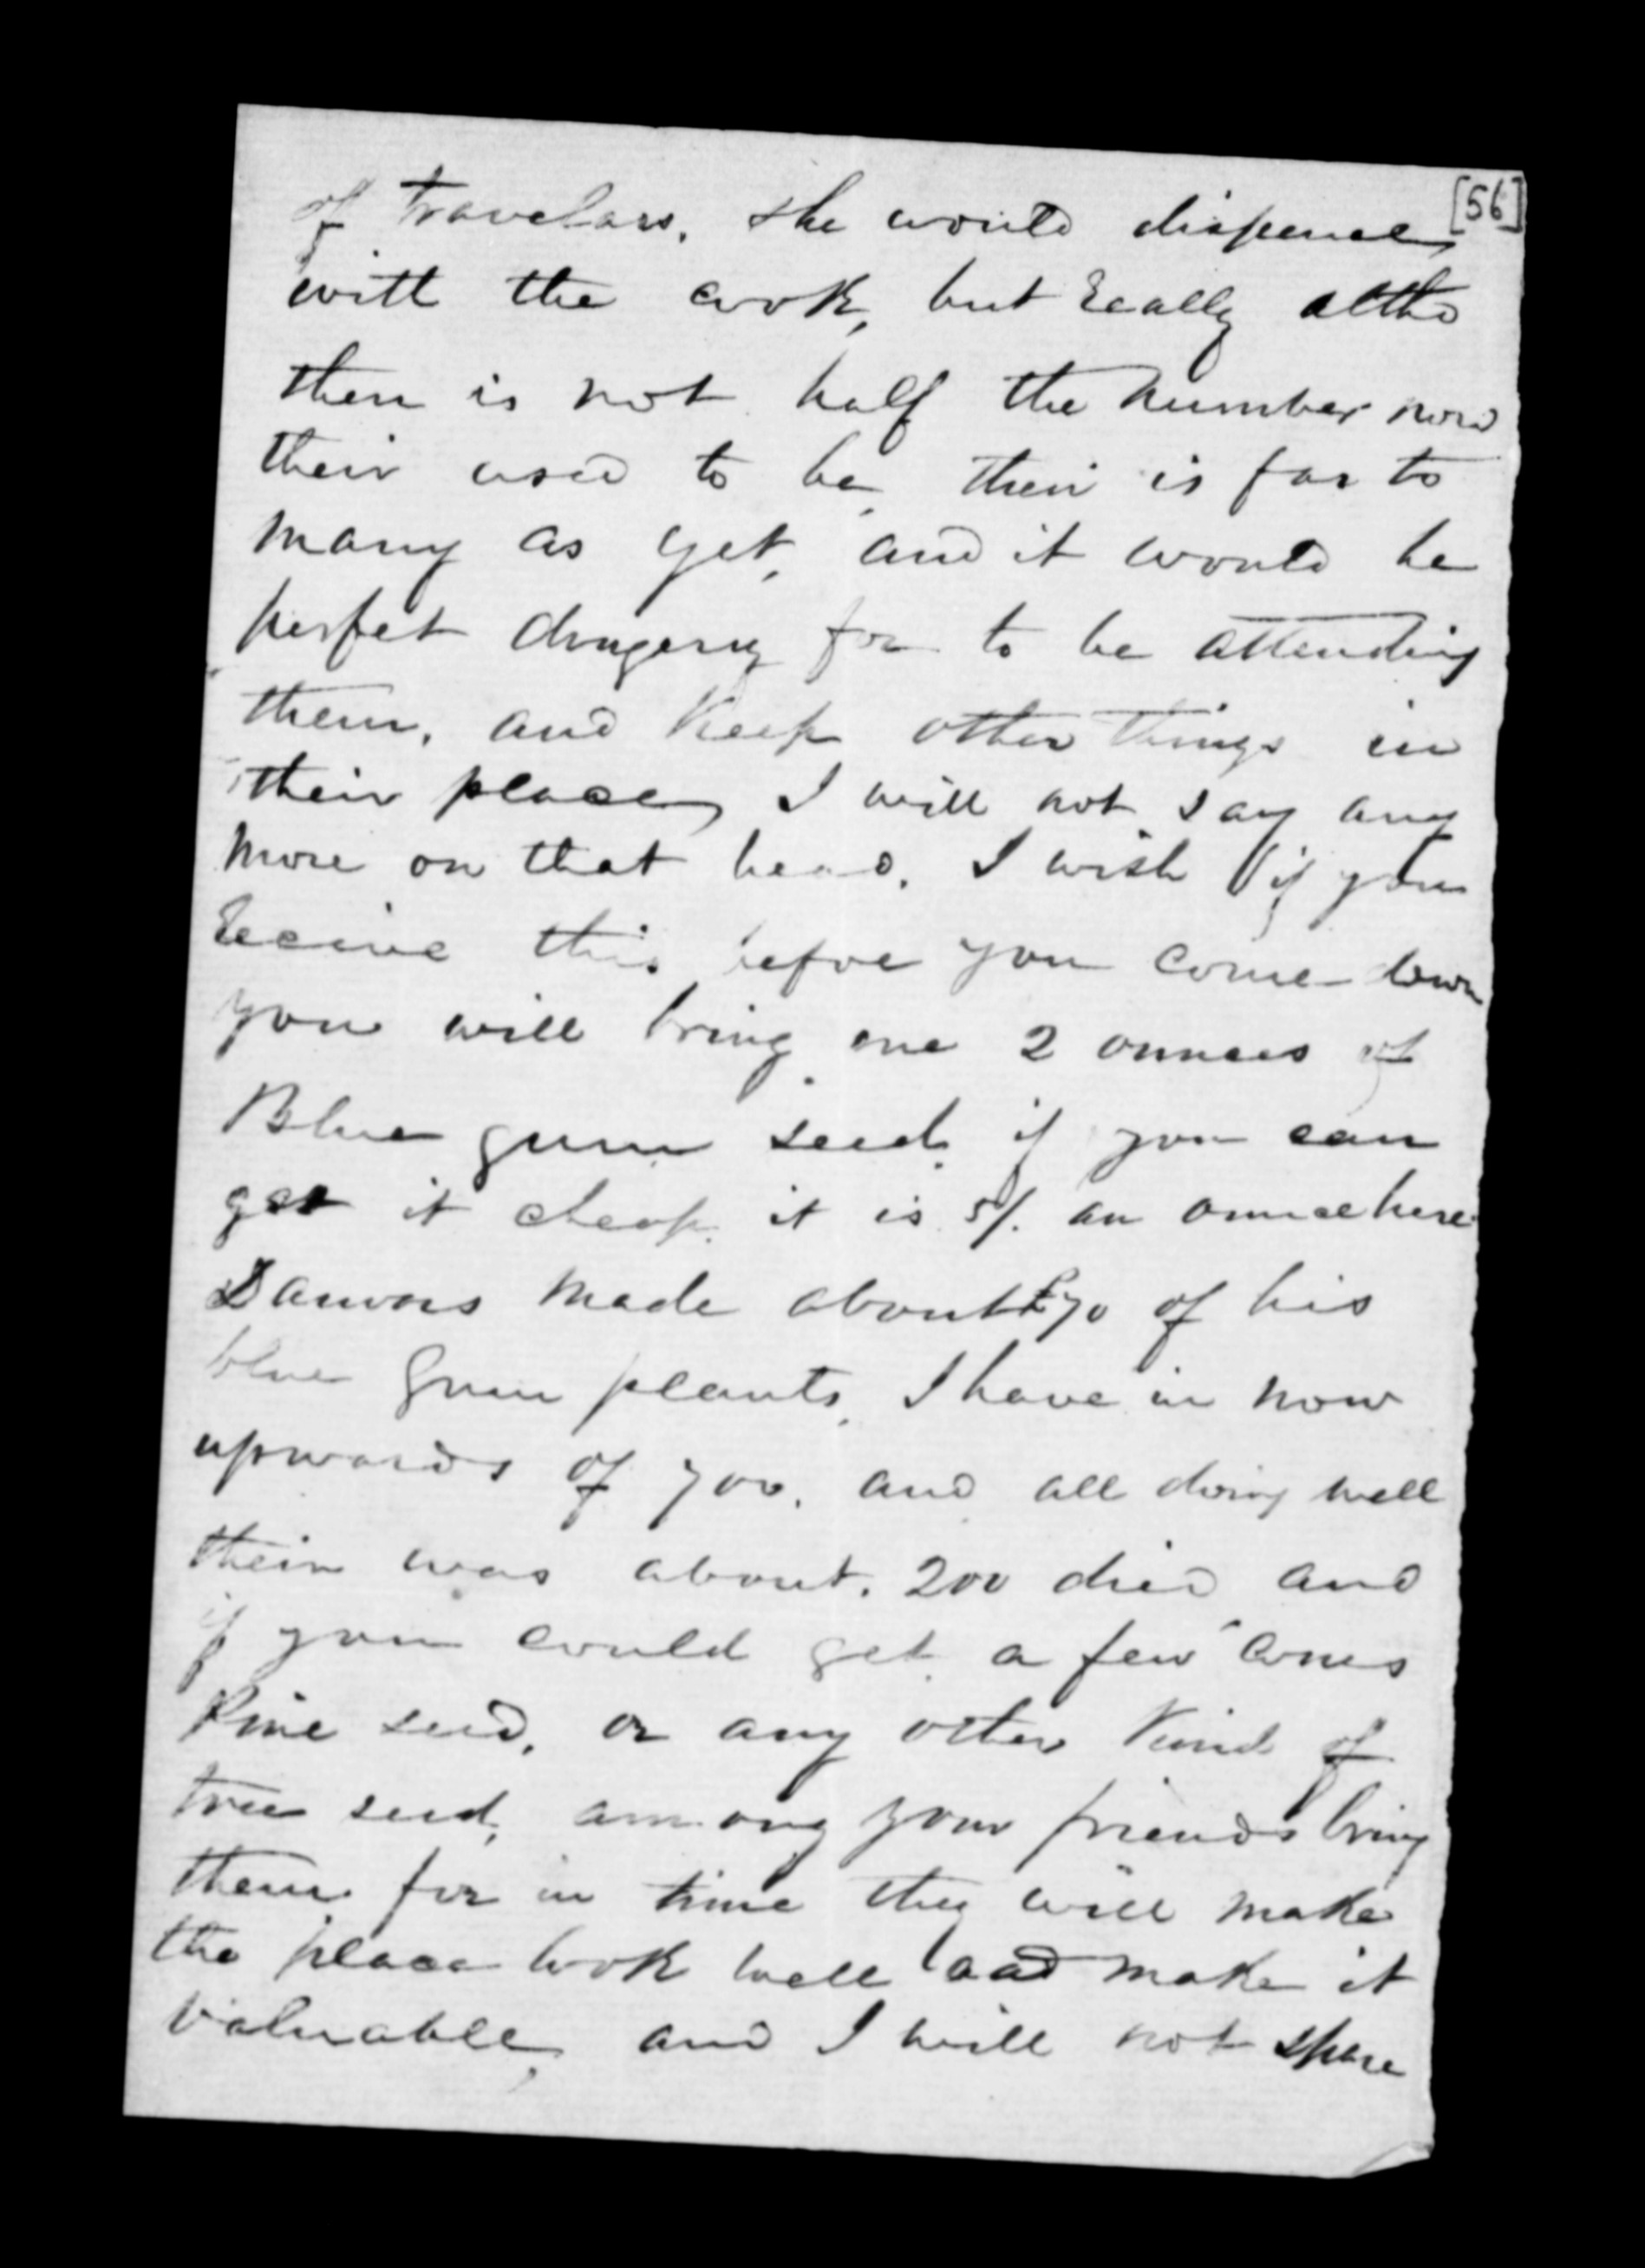 [56]
of travelars. she would dispence
with the cook, but really altho
their is not half the number now
their used to be, their is far to
many as yet, and it would be
perfet drugery for to be attending
them, and keep other things in
their place, I will not say any
more on that head. I wish if you
receive this befoe you come down
you will bring me 2 ounces of
Blue gum seed, if you can
get it cheap. it is 5/. an ounce here
made about £70 of his
blue gum plants, I have in now
upwards of 700. and all doing well
their was about. 200 died and
if you could get a few cones
Pine seed, or any other kind of
tree seed, among your friends bring
them for in time they will make
the place look well and make it
valuable, and I will not spare